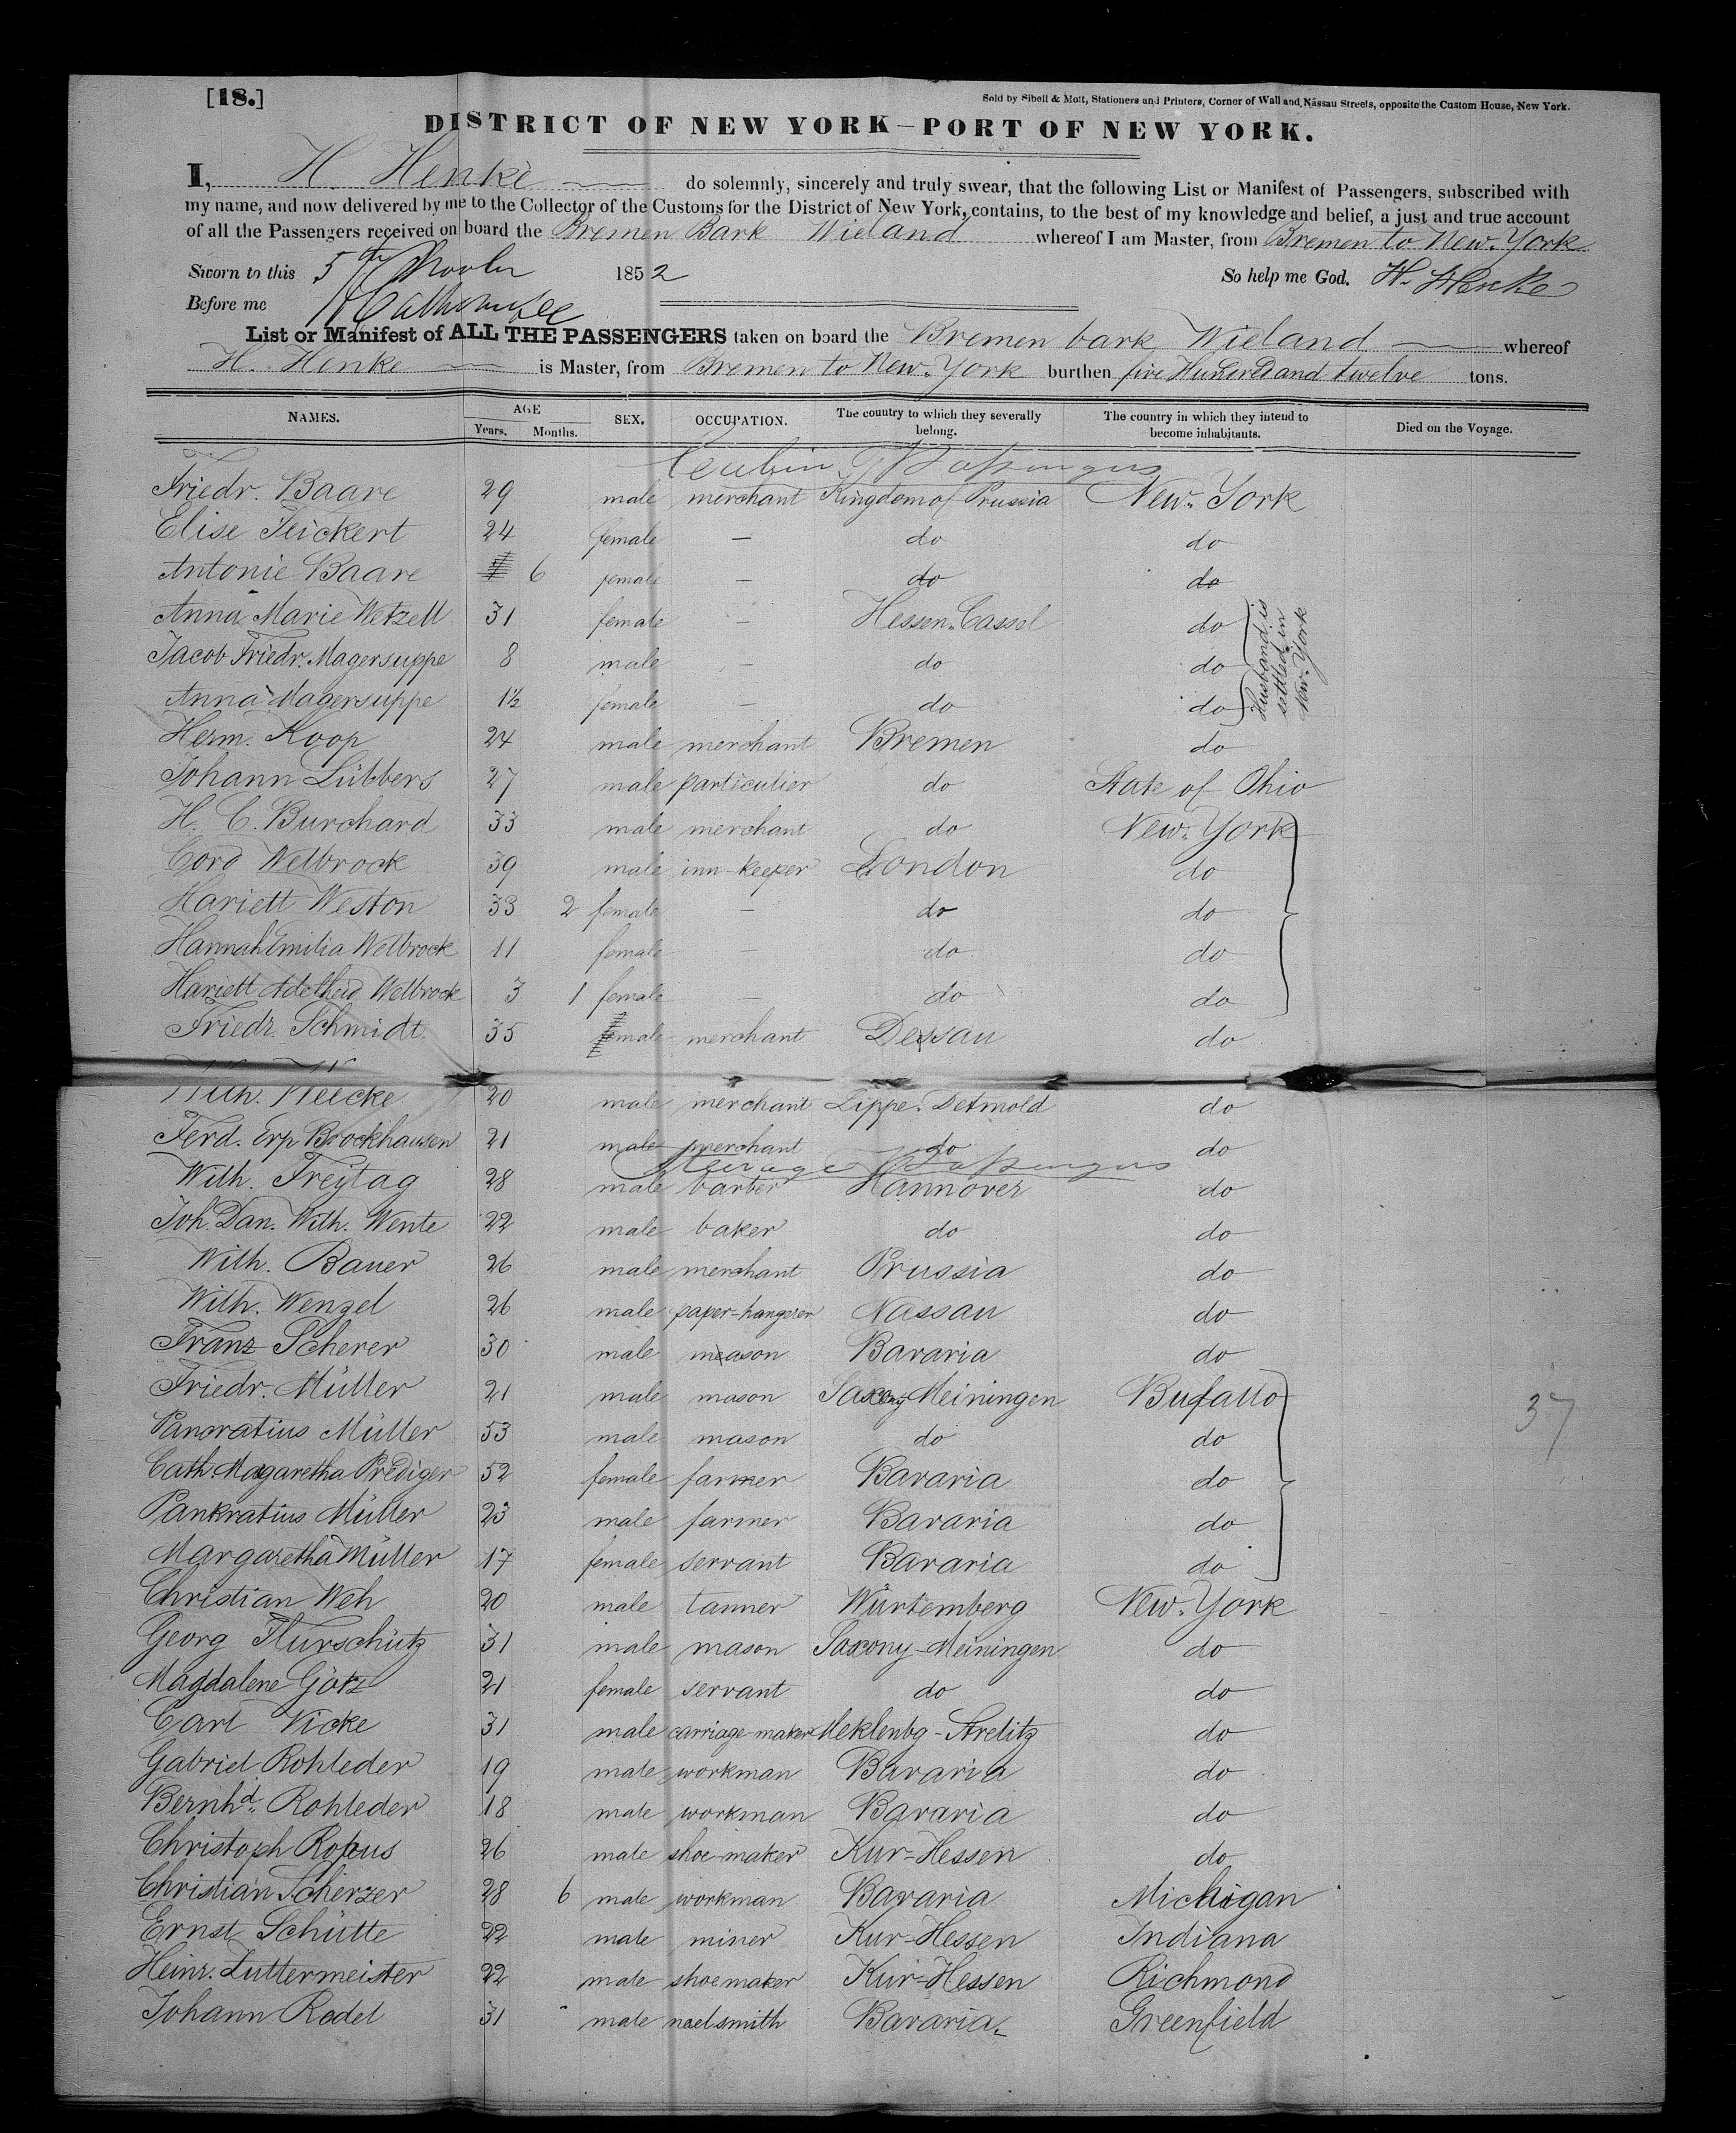 [18.]
Sold by Sibell & Mott, Stationers and Printers, Corner of Wall and Nassau Streets, opposite the Custom House, New York.
DISTRICT OF NEW YORK—PORT OF NEW YORK.
I, H. Henke do solemnly, sincerely and truly swear, that the following List or Manifest of Passengers, subscribed with
my name, and now delivered by me to the Collector of the Customs for the District of New York, contains, to the best of my knowledge and belief, a just and true account
of all the Passengers received on board the Bremen Bark Wieland whereof I am Master, from Bremen to New-York
Sworn to this 5th 1852 So help me God. H. Henke
Before me
List or Manifest of ALL THE PASSENGERS taken on board the Bremen bark Wieland whereof
H. Henke is Master, from Bremen to New-York burthen five Hundred and twelve tons.
NAMES. AGE Years. Months. SEX. OCCUPATION. The country to which they severally belong. The country in which they intend to become inhabitants. Died on the Voyage.
Cabin Passengers
Friedr. Baare 29 male merchant Kingdom of Prussia New-York
Elise Teickert 24 female — do do
Antonie Baare 6 female — do do
Anna Marie Wetzell 31 female — Hessen-Cassel do
Jacob Friedr. Magersuppe 8 male — do do
Anna Magersuppe 1½ female — do do
Husband is settled in New-York
Herm. Koop 24 male merchant Bremen do
Johann Lübbers 27 male particulier do State of Ohio
H. C. Burchard 33 male merchant do New-York
Cord Welbrock 39 male inn-keeper London do
Hariett Weston 33 2 female — do do
Hannah Emilia Welbrock 11 female — do do
Hariett Adelheid Welbrock 3 1 female — do do
Friedr. Schmidt 35 male merchant Dessau do
Wilh. Weecke 20 male merchant Lippe-Detmold do
Ferd. Erp Brockhausen 21 male merchant do do
Steerage Passengers
Wilh. Freytag 28 male barber Hannover do
Joh. Dan. Wilh. Wente 22 male baker do do
Wilh. Bauer 26 male merchant Prussia do
Wilh. Wenzel 26 male paper-hangerer Nassau do
Franz Scherer 30 male meason Bavaria do
Friedr. Müller 21 male mason Saxony Meiningen Bufallo
Pancratius Müller 53 male mason do do
37
Cath Magaretha Prediger 52 female farmer Bavaria do
Pankratius Müller 23 male farmer Bavaria do
Margaretha Müller 17 female servant Bavaria do
Christian Weh 20 male tanner Würtemberg New-York
Georg Flurschütz 31 male mason Saxony-Meiningen do
Magdalene Götz 21 female servant do do
Carl Vicke 31 male carriage-maker Meklenbg-Strelitz do
Gabriel Rohleder 19 male workman Bavaria do
Bernhd. Rohleder 18 male workman Bavaria do
Christoph Ropeus 26 male shoe-maker Kur-Hessen do
Christian Scherzer 28 6 male workman Bavaria Michigan
Ernst Schütte 22 male miner Kur-Hessen Indiana
Heinr. Luttermeister 22 male shoemaker Kur-Hessen Richmond
Johann Rodel 31 male naelsmith Bavaria Greenfield